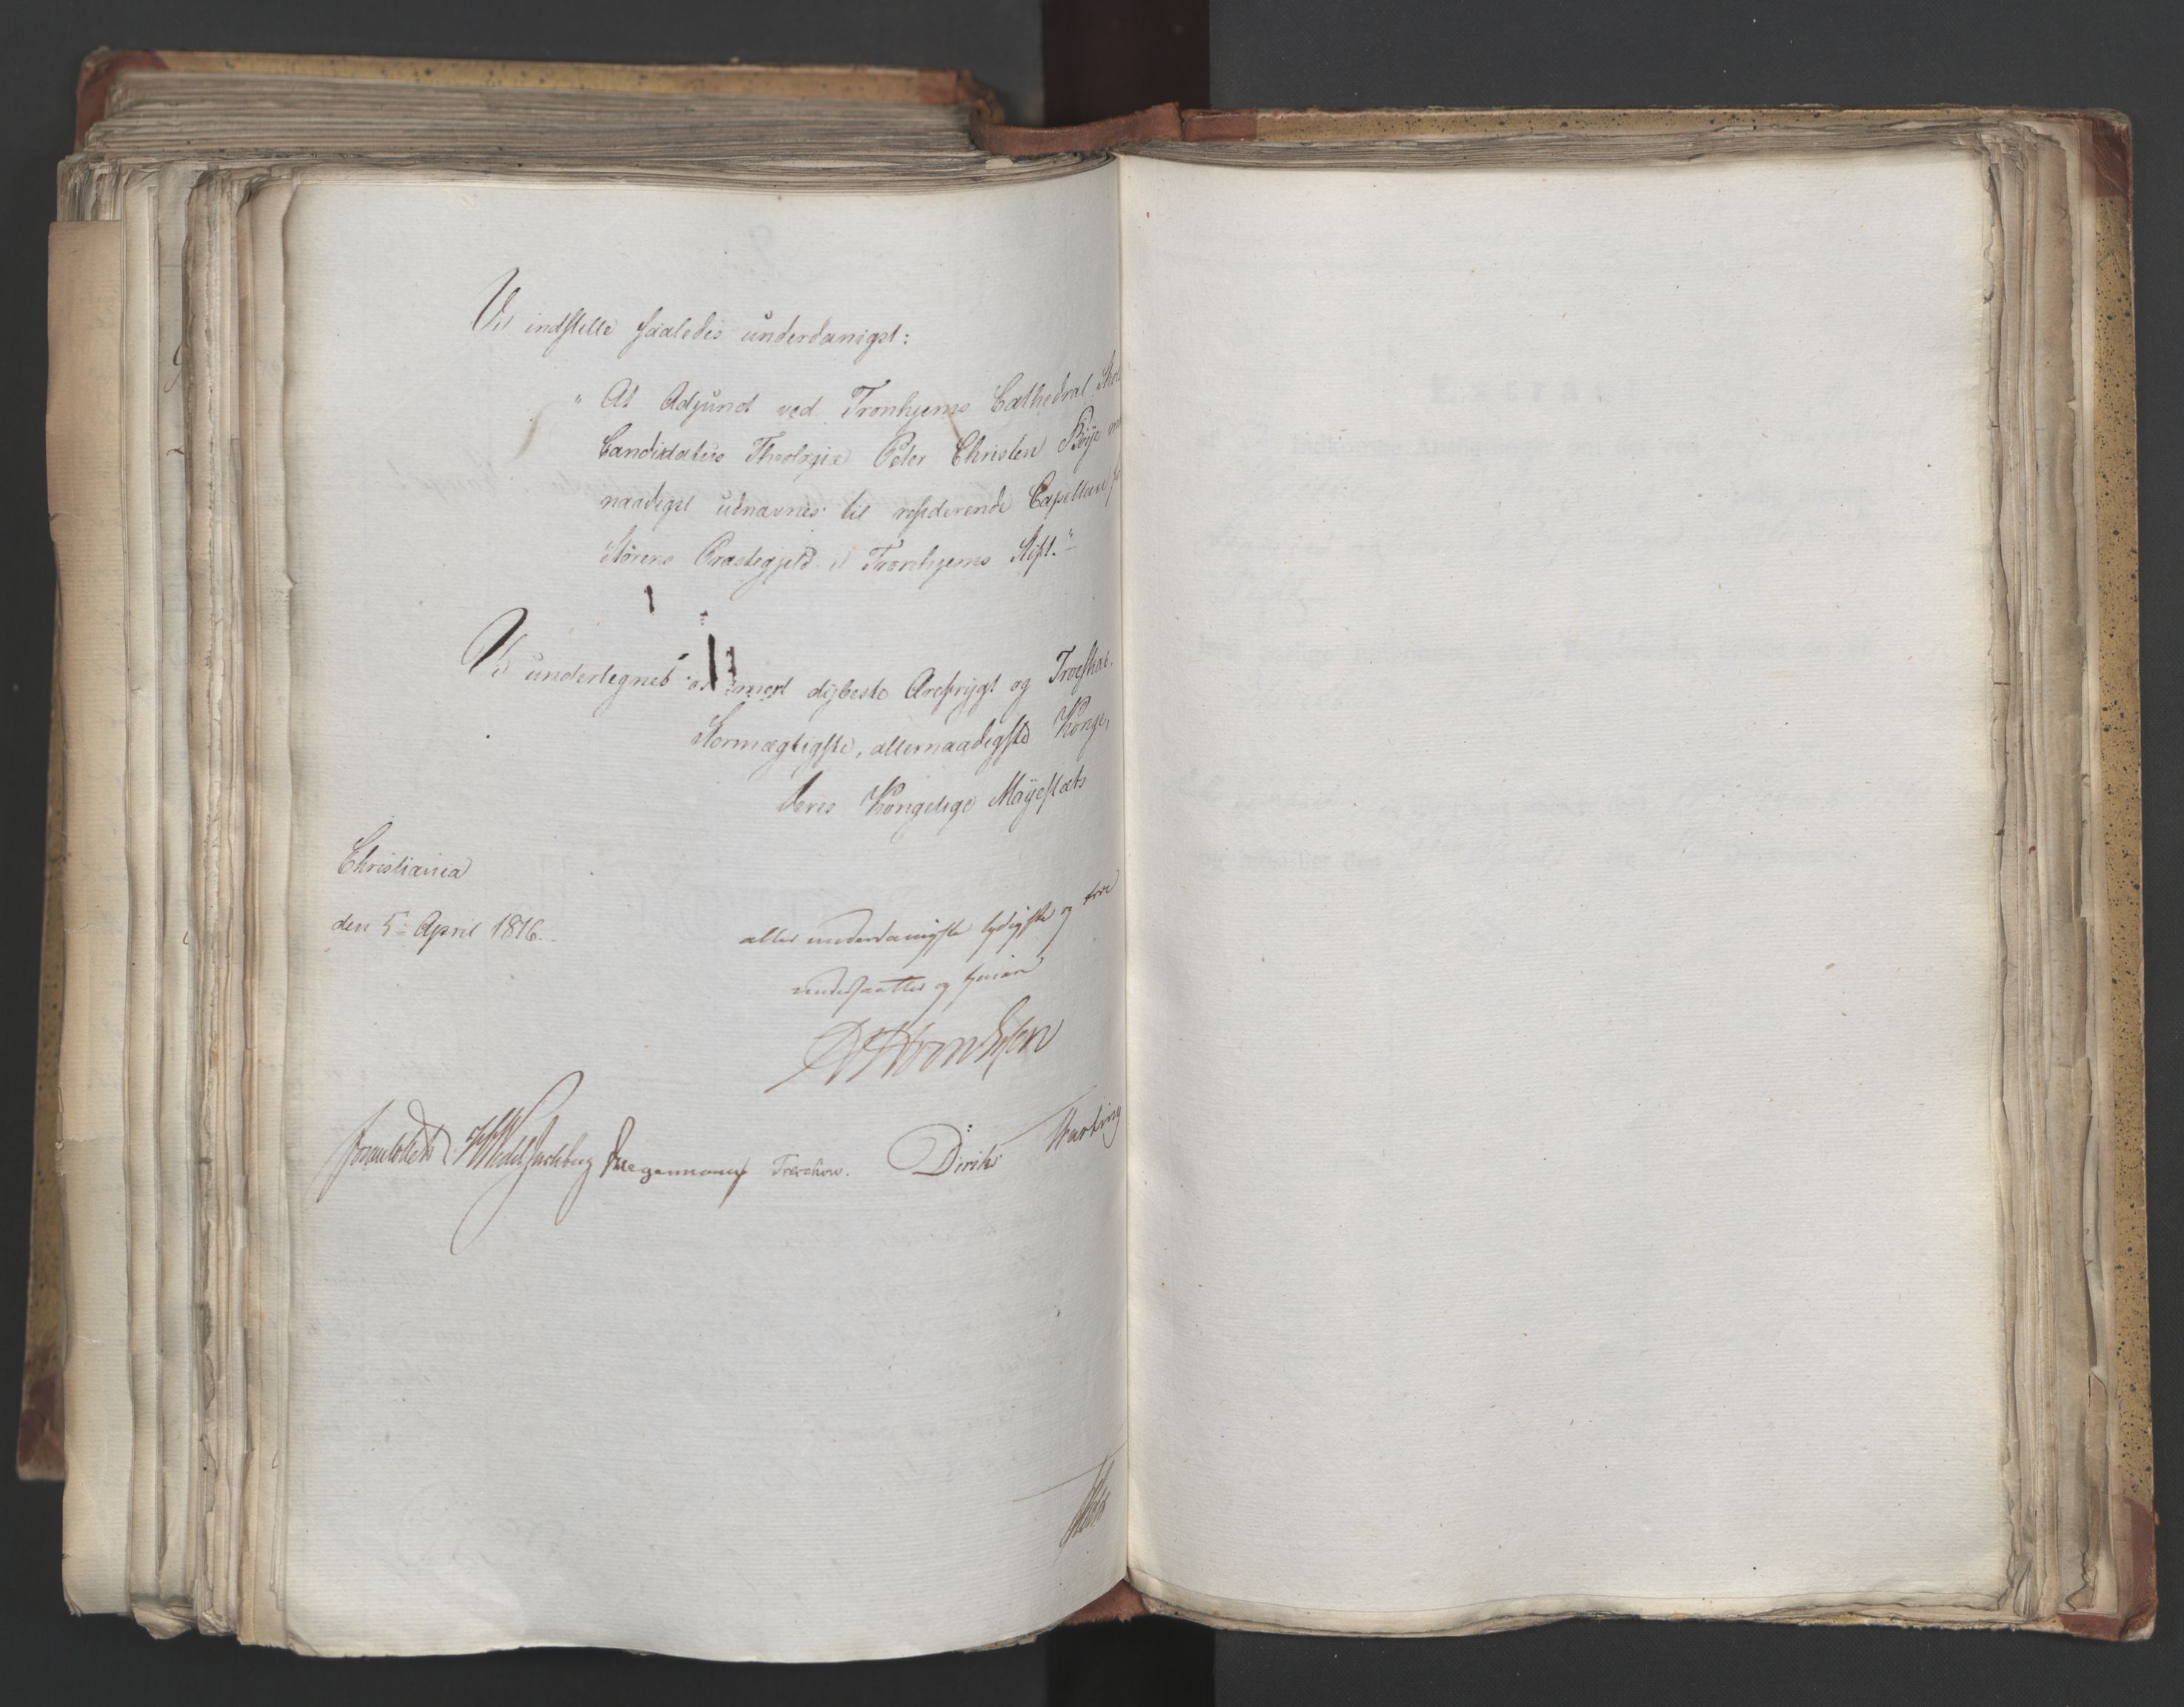 Vi indstille saaledes underdanigst:
" At Adjunct ved Tronhjems Cathedral
Candidatus Theologiæ Peter Christen Böye
naadigst udnævnes til residerende Capellan
Störens Præstegjeld i Tronhjems Stift."
Vi undertegnes med dijbeste Ærefrygt og Troeskab.
Stormægtigste, allernaadigste Konge,
Deres Kongelige Mayestæts
Christiania
den 5te April 1816.
aller underdanigste lydigste og troe
undersaatter og tjenere
Sommerhielm Wedel Jarlsberg Krogh Treschow. Diriks